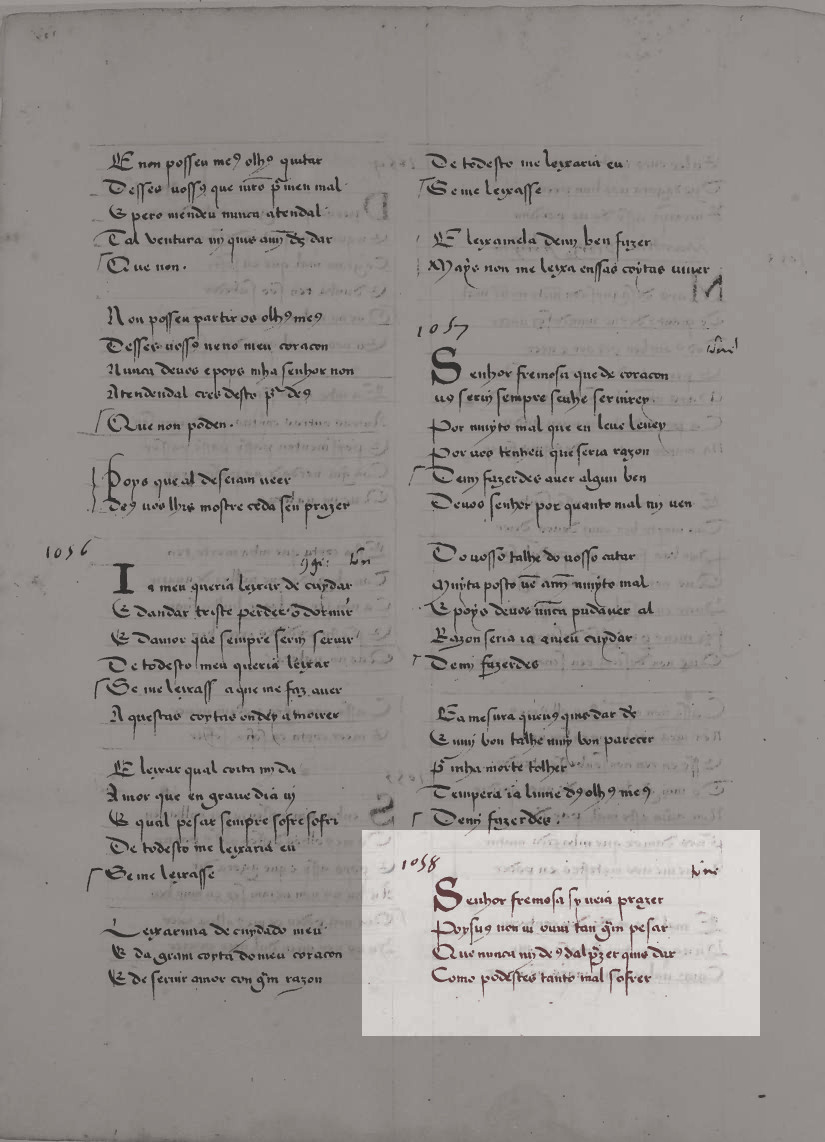 E non posseu meꝯ olhꝯ quitar
Desses uossꝯ que uirõ p̃ meu mal
E pero mendeu nunca atendal
Tal ventura mj quis amj̃ d̃s dar
Que non.
Non posseu partir os olhꝯ meꝯ
Desses uossꝯ neno meu coracon
Nunca deuos epoys mha senhor non
Atendendal cres desto p̃r deꝯ
Que non poden.
Poys que al deseiam veer
Deꝯ uos lhis mostre ceda seũ prazer
1056
Ia meu queria leixar de cuydar
E dandar triste perder o dormir
E damor que sempre seruj seruir
De todesto meu queria leixar
Se me leixass a que me faz auer
Aquestas coytas ondey a moirer
E leixar qual coita mj da
Amor que en graue dia uj
E qual pesar sempre sofre sofri
De todesto me leixaria eu
Se me leixasse
Leixarmia de cuydado meu
E da gram coyta do meu coracon
E de seruir amor con gram razon
De todesto me leixaria eu
Se me leixasse
E leixamela demj ben fazer
Mays non me leixa enssas coytas uiuer
1057
Senhor fremosa que de coracon
uꝯ seruj sempre seruirey
Por muyto mal que en leue leuey
Por uos tenheu que seria razon
Demj fazerdes auer algun ben
Deuos senhor por quanto mal mj ven
Do uosso talhe do uosso catar
Muyta posto ue amj̃ muyto mal
E poys deuos nũca pudauer al
Razon seria ia a meu cuydar
Demj fazerdes
E a mesura que uꝯ quis dar d̃s
E muj bon talhe muy bon parecer
p̃ mha morte tolher
Tempera ia lume dꝯ olhꝯ meꝯ
Demj fazerdes.
1058
Senhor fremosa sy ueia prazer
Poys uꝯ non ui ouuj tan grã pesar
Que nunca mj deꝯ dal p̃zer quis dar
Como podestes tanto mal sofrer